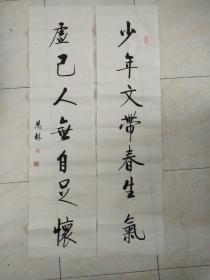 少年文帶春生氣
虛己人無自足懷